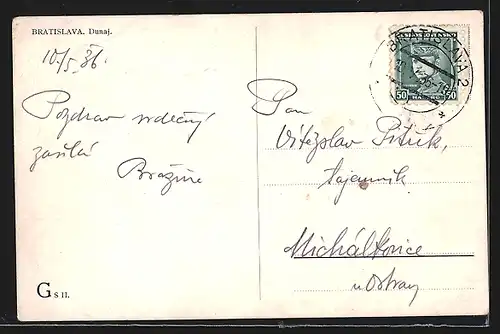 BRATISLAVA. Dunaj.
10/5. 36.
Pozdrav srdečný
zasílá
BRATISLAVA 2
ČESKOSLOVENSKO
50 50
Pan
Vítězslav Pituk,
tajemník
Michálkovice
u Ostravy
G S II.